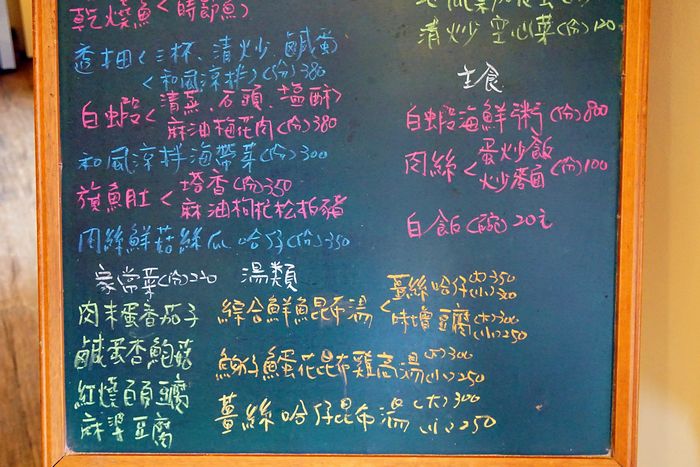 乾燒魚<(時節魚)
透抽<三杯、清炒、鹹蛋
<和風涼拌>(份)380
白蝦<清蒸、石頭、塩酥>
麻油梅花肉(份)380
和風涼拌海帶菜(份)300
旗魚肚<塔香(份)350
麻油枸杞松柏豬
肉絲鮮菇絲瓜 哈仔(份)350
清炒空心菜(份)120
主食
白蝦海鮮粥(份)800
肉絲<蛋炒飯
炒麵(份)100
白飯(碗)20元
家常菜(份)220
肉末蛋香茄子
鹹蛋杏鮑菇
紅燒百頁豆腐
麻婆豆腐
湯類
綜合鮮魚昆布湯<薑絲哈仔(大)350
(小)300
味噌豆腐(大)300
(小)250
鮑仔鱻蛋花昆布雞高湯(大)300
(小)250
薑絲哈仔昆布湯(大)300
(小)250